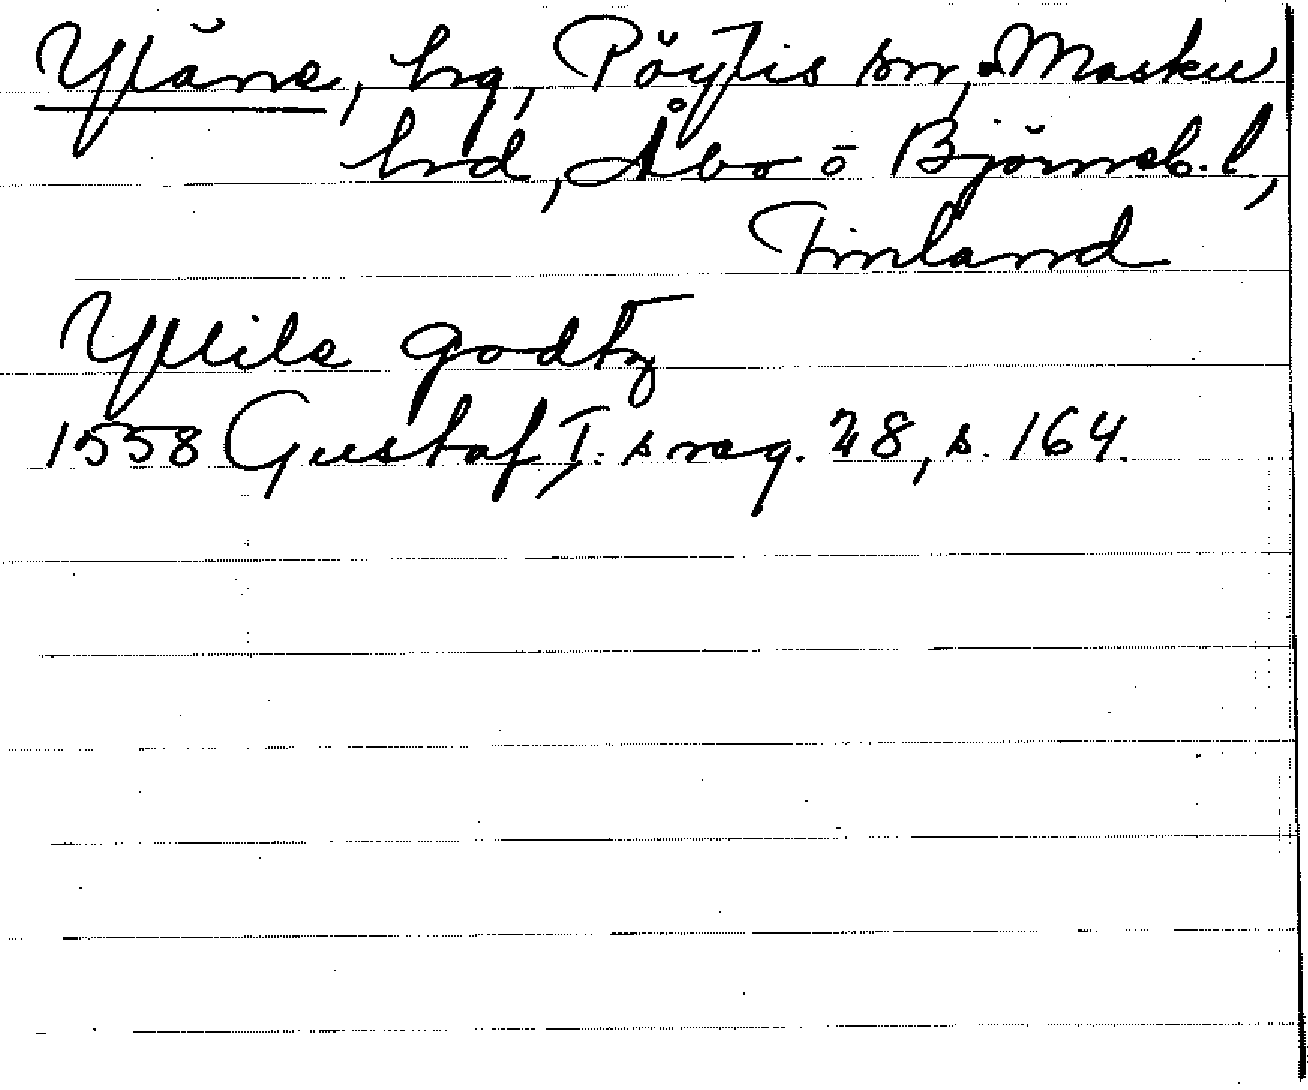 Yläne, hg, Pöytis sn, Masku
hd, Åbo o Björneb. l,
Finland
Yllile godtz
1558 Gustaf I:s reg. 28, s. 164.